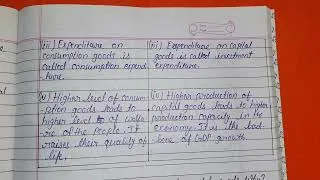 (iii) Expenditure on
consumption goods is
called consumption expend-
iture.
(iii) Expenditure on capital
goods is called investment
expenditure.
(iv) Higher level of consum-
ption goods leads to
higher level of welf-
are of the people. It
raises their quality of
life.
(iv) Higher production of
capital goods leads to higher
production capacity in the
economy. It is the back-
bone of GDP growth.